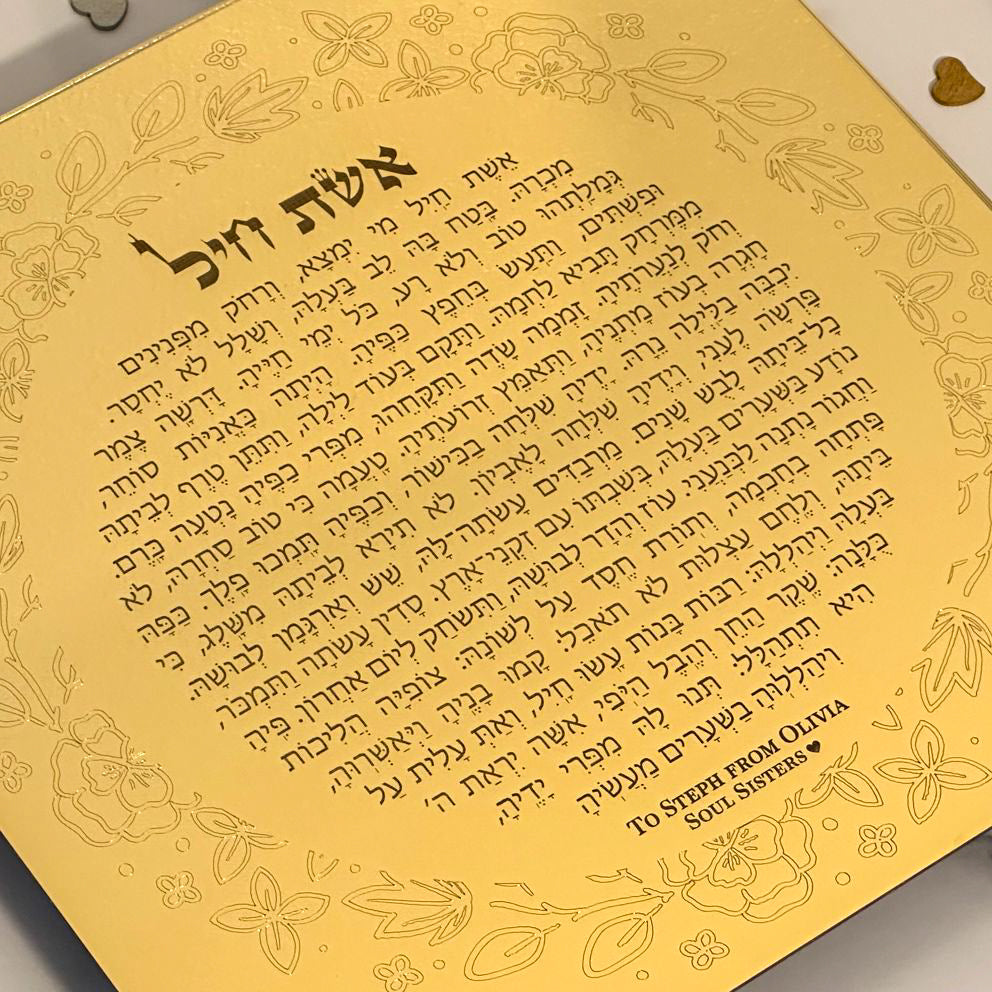 אשת חיל
אֵשֶׁת חַיִל מִי יִמְצָא, וְרָחֹק מִפְּנִינִים
מִכְרָהּ. בָּטַח בָּהּ לֵב בַּעְלָהּ, וְשָׁלָל לֹא יֶחְסָר.
גְּמָלַתְהוּ טוֹב וְלֹא רָע, כֹּל יְמֵי חַיֶּיהָ. דָּרְשָׁה צֶמֶר
וּפִשְׁתִּים, וַתַּעַשׂ בְּחֵפֶץ כַּפֶּיהָ. הָיְתָה כָּאֳנִיּוֹת סוֹחֵר,
מִמֶּרְחָק תָּבִיא לַחְמָהּ. וַתָּקָם בְּעוֹד לַיְלָה, וַתִּתֵּן טֶרֶף לְבֵיתָהּ
וְחֹק לְנַעֲרֹתֶיהָ. זָמְמָה שָׂדֶה וַתִּקָּחֵהוּ, מִפְּרִי כַפֶּיהָ נָטְעָה כָּרֶם.
חָגְרָה בְעוֹז מָתְנֶיהָ, וַתְּאַמֵּץ זְרוֹעֹתֶיהָ. טָעֲמָה כִּי טוֹב סַחְרָהּ, לֹא
יִכְבֶּה בַּלַּיְלָה נֵרָהּ. יָדֶיהָ שִׁלְּחָה בַכִּישׁוֹר, וְכַפֶּיהָ תָּמְכוּ פָלֶךְ. כַּפָּהּ
פָּרְשָׂה לֶעָנִי, וְיָדֶיהָ שִׁלְּחָה לָאֶבְיוֹן. לֹא תִירָא לְבֵיתָהּ מִשָּׁלֶג, כִּי
כָל־בֵּיתָהּ לָבֻשׁ שָׁנִים. מַרְבַדִּים עָשְׂתָה־לָּהּ, שֵׁשׁ וְאַרְגָּמָן לְבוּשָׁהּ.
נוֹדָע בַּשְּׁעָרִים בַּעְלָהּ, בְּשִׁבְתּוֹ עִם זִקְנֵי־אָרֶץ. סָדִין עָשְׂתָה וַתִּמְכֹּר,
וַחֲגוֹר נָתְנָה לַכְּנַעֲנִי. עוֹז וְהָדָר לְבוּשָׁהּ, וַתִּשְׂחַק לְיוֹם אַחֲרוֹן. פִּיהָ
פָּתְחָה בְחָכְמָה, וְתוֹרַת חֶסֶד עַל לְשׁוֹנָהּ. צוֹפִיָּה הֲלִיכוֹת
בֵּיתָהּ, וְלֶחֶם עַצְלוּת לֹא תֹאכֵל. קָמוּ בָנֶיהָ וַיְאַשְּׁרוּהָ,
בַּעְלָהּ וַיְהַלְלָהּ. רַבּוֹת בָּנוֹת עָשׂוּ חָיִל, וְאַתְּ עָלִית עַל
כֻּלָּנָה. שֶׁקֶר הַחֵן וְהֶבֶל הַיֹּפִי, אִשָּׁה יִרְאַת ה'
הִיא תִתְהַלָּל. תְּנוּ לָהּ מִפְּרִי יָדֶיהָ,
וִיהַלְלוּהָ בַּשְּׁעָרִים מַעֲשֶׂיהָ
To Steph from Olivia
Soul Sisters♥